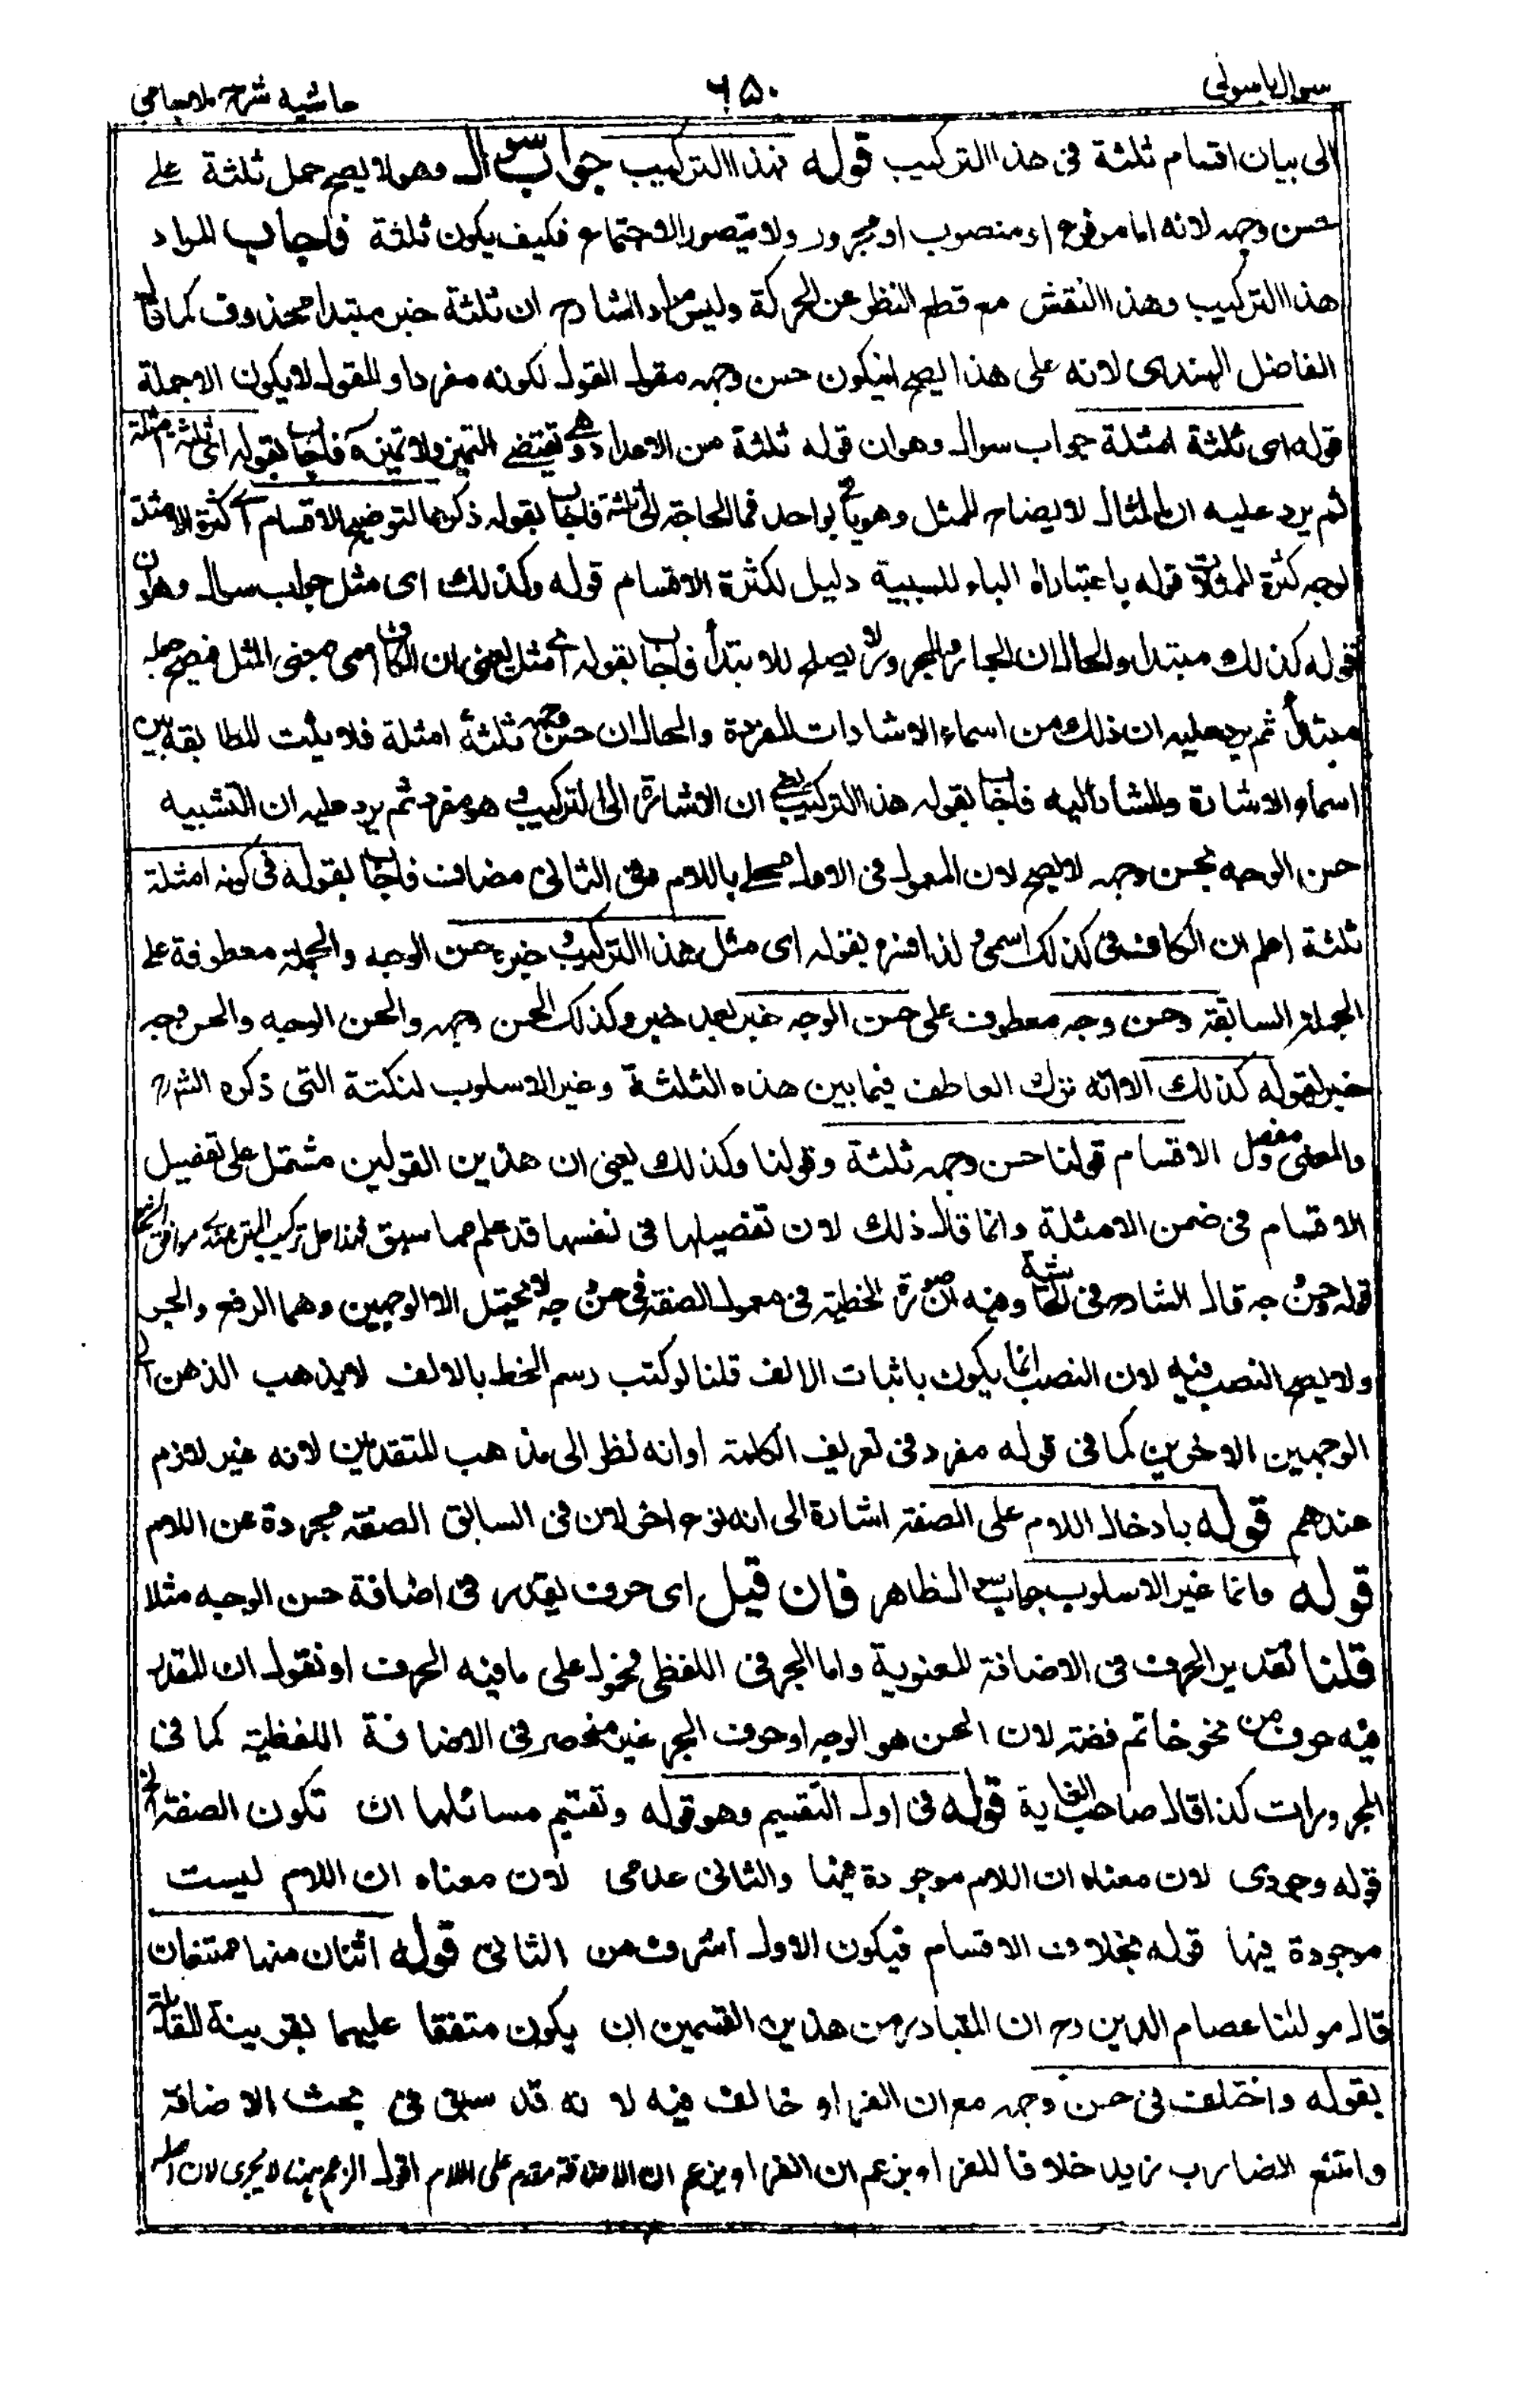 سوال باسولی ۶۵۰ حاشیه شرح ملا جامی
الى بيان اقسام ثلثة فى هذا التركيب قوله فهذا التركيب جواب سوال وهو لا يصح حمل ثلثة على
حسن وجهه لانه اما مرفوع او منصوب او مجرور ولا يتصور الاجتماع فكيف يكون ثلثة فاجاب المراد
هذا التركيب وهذا النقش مع قطع النظر عن الحركة وليس مراد الشارح ان ثلثة خبر مبتدا محذوف كما قال
الفاضل الهندى لانه على هذا يصح ان يكون حسن وجهه مقول القول لكونه مفردا و المقول لا يكون الا جملة
قوله اى ثلثة امثلة جواب سوال وهو ان قوله ثلثة من الاعداد وهى تقتضى التميز ولا تميز له فاجاب بقوله اى ثلثة امثلة
ثم يرد عليه ان المثال لايضاح الممثل وهو ياتى بواحد فما الحاجة الى ثلثة فاجاب بقوله ذكرها لتوضيح الاقسام اى كثرة الامثلة
لوجه كثرة الممثلات قوله باعتبار اه الباء للسببية دليل لكثرة الاقسام قوله وكذلك اى مثل جواب سوال وهو ان
قوله كذلك مبتدا والحال ان الجار والمجرور لا يصلح للابتداء فاجاب بقوله اى مثل يعنى ان الكاف اسمى بمعنى المثل فيصح جعله
مبتدأ ثم يرد عليه ان ذلك من اسماء الاشارات المفردة والحال ان حسن وجهه ثلثة امثلة فلا يثبت المطابقة بين
اسماء الاشارة والمشار اليه فاجاب بقوله هذا التركيب يعنى ان الاشارة الى التركيب و هو مفرد ثم يرد عليه ان التشبيه
حسن الوجه بحسن وجهه لا يصح لان المعمول فى الاول محلى باللام وفى الثانى مضاف فاجاب بقوله فى كونه امثلة
ثلثة اعلم ان الكاف فى كذلك اسمى و لذا فسره بقوله اى مثل هذا التركيب و خبره حسن الوجه والجملة معطوفة على
الجملة السابقة وحسن وجه معطوف على حسن الوجه خبر بعد خبر وكذلك الحسن وجهه والحسن الوجه والحسن وجه
خبر لقوله كذلك الا انه ترك العاطف فيما بين هذه الثلثة وغير الاسلوب لنكتة التى ذكره الشرح
والمعنى مفصل الاقسام قولنا حسن وجهه ثلثة وقولنا وكذلك يعنى ان هذين القولين مشتمل على تفصيل
الاقسام فى ضمن الامثلة وانما قال ذلك لان تفصيلها فى نفسها قد علم مما سبق فهذا حل تركيب المتن
قوله وحسن وجه قال الشارح فى الحاشية وفيه ان صورة الخطية فى معمول الصفة فى حسن وجه لا تحتمل الا الوجهين وهما الرفع والجر
ولا يصح النصب فيه لان النصب انما يكون باثبات الالف قلنا لو كتب رسم الخط بالالف لا يذهب الذهن الى
الوجهين الاخرين كما فى قوله مفرد فى تعريف الكلمة او انه نظر الى مذهب المتقدمين لانه غير لازم
عندهم قوله بادخال اللام على الصفة اشارة الى انه نوع اخر لان فى السابق الصفة مجردة عن اللام
قوله وانما غير الاسلوب جواب سوال ظاهر فان قيل اى حرف يقدر فى اضافة حسن الوجه مثلا
قلنا تقدير الحرف فى الاضافة المعنوية واما الجر فى اللفظى محمول على ما فيه الحرف او نقول ان المقدر
فيه حرف من نحو خاتم فضة لان الحسن هو الوجه او حرف الجر غير منحصر فى الاضافة اللفظية كما فى
المجرورات كذا قال صاحب الغاية قوله فى اول التقسيم وهو قوله وتقسيم مسائلها ان تكون الصفة الخ
قوله وجودى لان معناه ان اللام موجودة فيها والثانى عدمى لان معناه ان اللام ليست
موجودة فيها قوله بخلاف الاقسام فيكون الاول اشرف من الثانى قوله اثنان منها ممتنعان
قال مولنا عصام الدين رح ان المتبادر من هذين القسمين ان يكون متفقا عليهما بقرينة المقابلة
بقوله واختلف فى حسن وجهه مع ان الفراء خالف فيه لانه قد سبق فى بحث الاضافة
وامتنع الضارب زيد خلافا للفراء وبزعم ان الفراء يزعم ان الاضافة مقدم على اللام اقول الزعم ههنا لا يجرى لان اصله